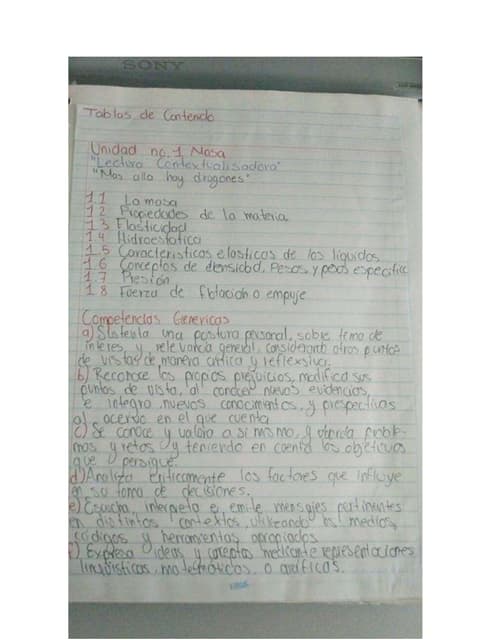 SONY
Tablas de Contenido
Unidad no. 1 Masa
"Lectura Contextualisadora"
"Mas alla hay dragones"
1.1 La masa
1.2 Propiedades de la materia
1.3 Elasticidad
1.4 Hidroestatica
1.5 Caracteristicas elasticas de los liquidos
1.6 Conceptos de densidad, Pesos y pesos especifico
1.7 Presion
1.8 Fuerza de flotacion o empuje
Competencias Genericas
a) Sustenta una postura personal, sobre tema de
interes y relevancia general, considerando otros puntos
de vistas de manera critica y reflexiva.
b) Reconoce los propos prejuicios, modifica sus
puntos de vista, al conocer nuevos evidencias,
e integra nuevos conocimientos y prespectivas
al acervo en el que cuenta
c) Se conoce y valora a si mismo, y aborda proble-
mas y retos y teniendo en cuenta los objetivos
que persigue.
d) Analiza criticamente los factores que influye
en su toma de decisiones.
e) Escucha, interpreta e emite mensajes pertinentes
en distintos contextos, utilizando los medios,
codigos y herramientas apropiados
f) Expresa ideas y conceptos mediante representaciones
linguisticas, matematicas o graficas.